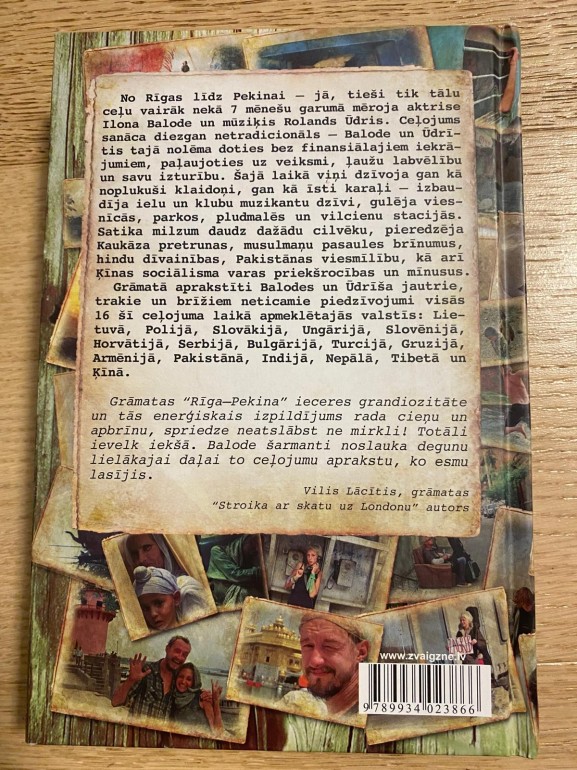 No Rīgas līdz Pekinai — jā, tieši tik tālu
ceļu vairāk nekā 7 mēnešu garumā mēroja aktrise
Ilona Balode un mūziķis Rolands Ūdris. Ceļojums
sanāca diezgan netradicionāls — Balode un Ūdrī-
tis tajā nolēma doties bez finansiālajiem iekrā-
jumiem, paļaujoties uz veiksmi, ļaužu labvēlību
un savu izturību. Šajā laikā viņi dzīvoja gan kā
noplukuši klaidoņi, gan kā īsti karaļi — izbau-
dīja ielu un klubu muzikantu dzīvi, gulēja vies-
nīcās, parkos, pludmalēs un vilcienu stacijās.
Satika milzum daudz dažādu cilvēku, pieredzēja
Kaukāza pretrunas, musulmaņu pasaules brīnumus,
hindu dīvainības, Pakistānas viesmīlību, kā arī
Ķīnas sociālisma varas priekšrocības un mīnusus.
Grāmatā aprakstīti Balodes un Ūdrīša jautrie,
trakie un brīžiem neticamie piedzīvojumi visās
16 šī ceļojuma laikā apmeklētajās valstīs: Lie-
tuvā, Polijā, Slovākijā, Ungārijā, Slovēnijā,
Horvātijā, Serbijā, Bulgārijā, Turcijā, Gruzijā,
Armēnijā, Pakistānā, Indijā, Nepālā, Tibetā un
Ķīnā.
Grāmatas “Rīga—Pekina” ieceres grandiozitāte
un tās enerģiskais izpildījums rada cieņu un
apbrīnu, spriedze neatslābst ne mirkli! Totāli
ievelk iekšā. Balode šarmanti noslauka degunu
lielākajai daļai to ceļojumu aprakstu, ko esmu
lasījis.
Vilis Lācītis, grāmatas
“Stroika ar skatu uz Londonu” autors
www.zvaigzne.lv
9 789934 023866